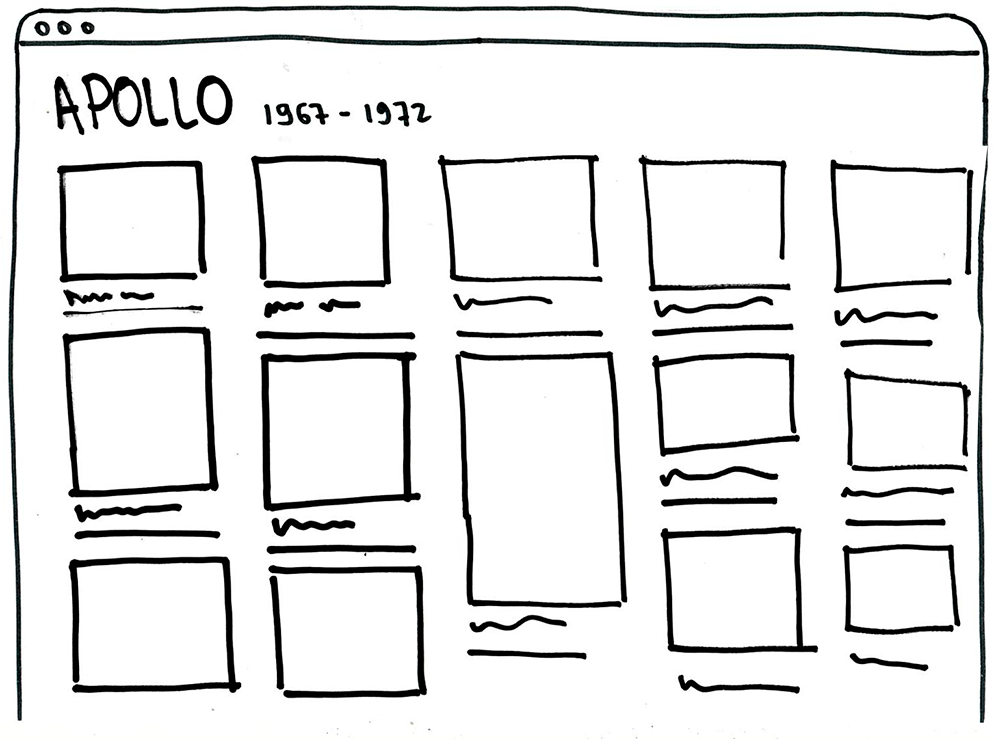 APOLLO 1967 - 1972